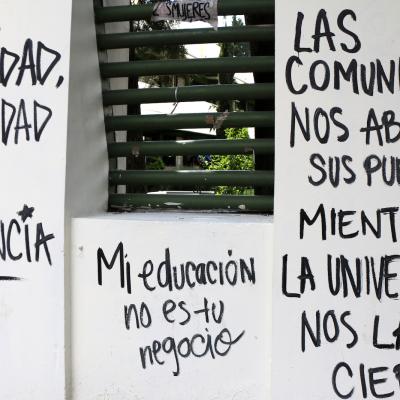 SMUJERES
DAD,
DAD
NCIA
Mi educación
no es tu
negocio
LAS
COMUNI
NOS AB
SUS PU
MIENT
LA UNIVE
NOS LA
CIE